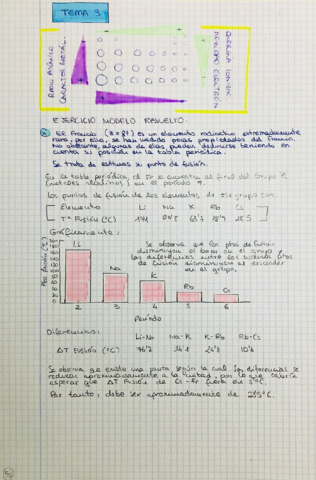 TEMA 3
RADIO ATÓMICO
CARÁCTER METÁL.
ENERGÍA IONIZ.
AFINIDAD ELECTRÓN
EJERCICIO MODELO RESUELTO.
El Francio (Z=87) es un elemento radiactivo extremadamente
raro, por ello, se han medido pocas propiedades del Francio.
No obstante, algunas de ellas pueden deducirse teniendo en
cuenta su posición en la tabla periódica
Se trata de estimar su punto de fusión.
En la tabla periódica, el Fr se encuentra al final del Grupo 1
(metales alcalinos) en el período 7.
Los puntos de fusión de los elementos de ese grupo son:
Elemento Li Na K Rb Cs
Tª Fusión (ºC)
Gráficamente:
Se observa que los ptos de fusión
disminuyen al bajar en el grupo y
las diferencias entre los
de fusión disminuyen al descender
en el grupo.
Li
Na
K
Rb
Cs
2 3 4 5 6
Período
Diferencias:
Li-Na Na-K K-Rb Rb-Cs
ΔT Fusión (ºC)
Se observa que existe una pauta según la cual las diferencias se
reducen aproximadamente a la mitad, por lo que cabría
esperar que ΔT Fusión de Cs-Fr fuera en 5ºC.
Por tanto, debe ser aproximadamente de 23'5ºC.